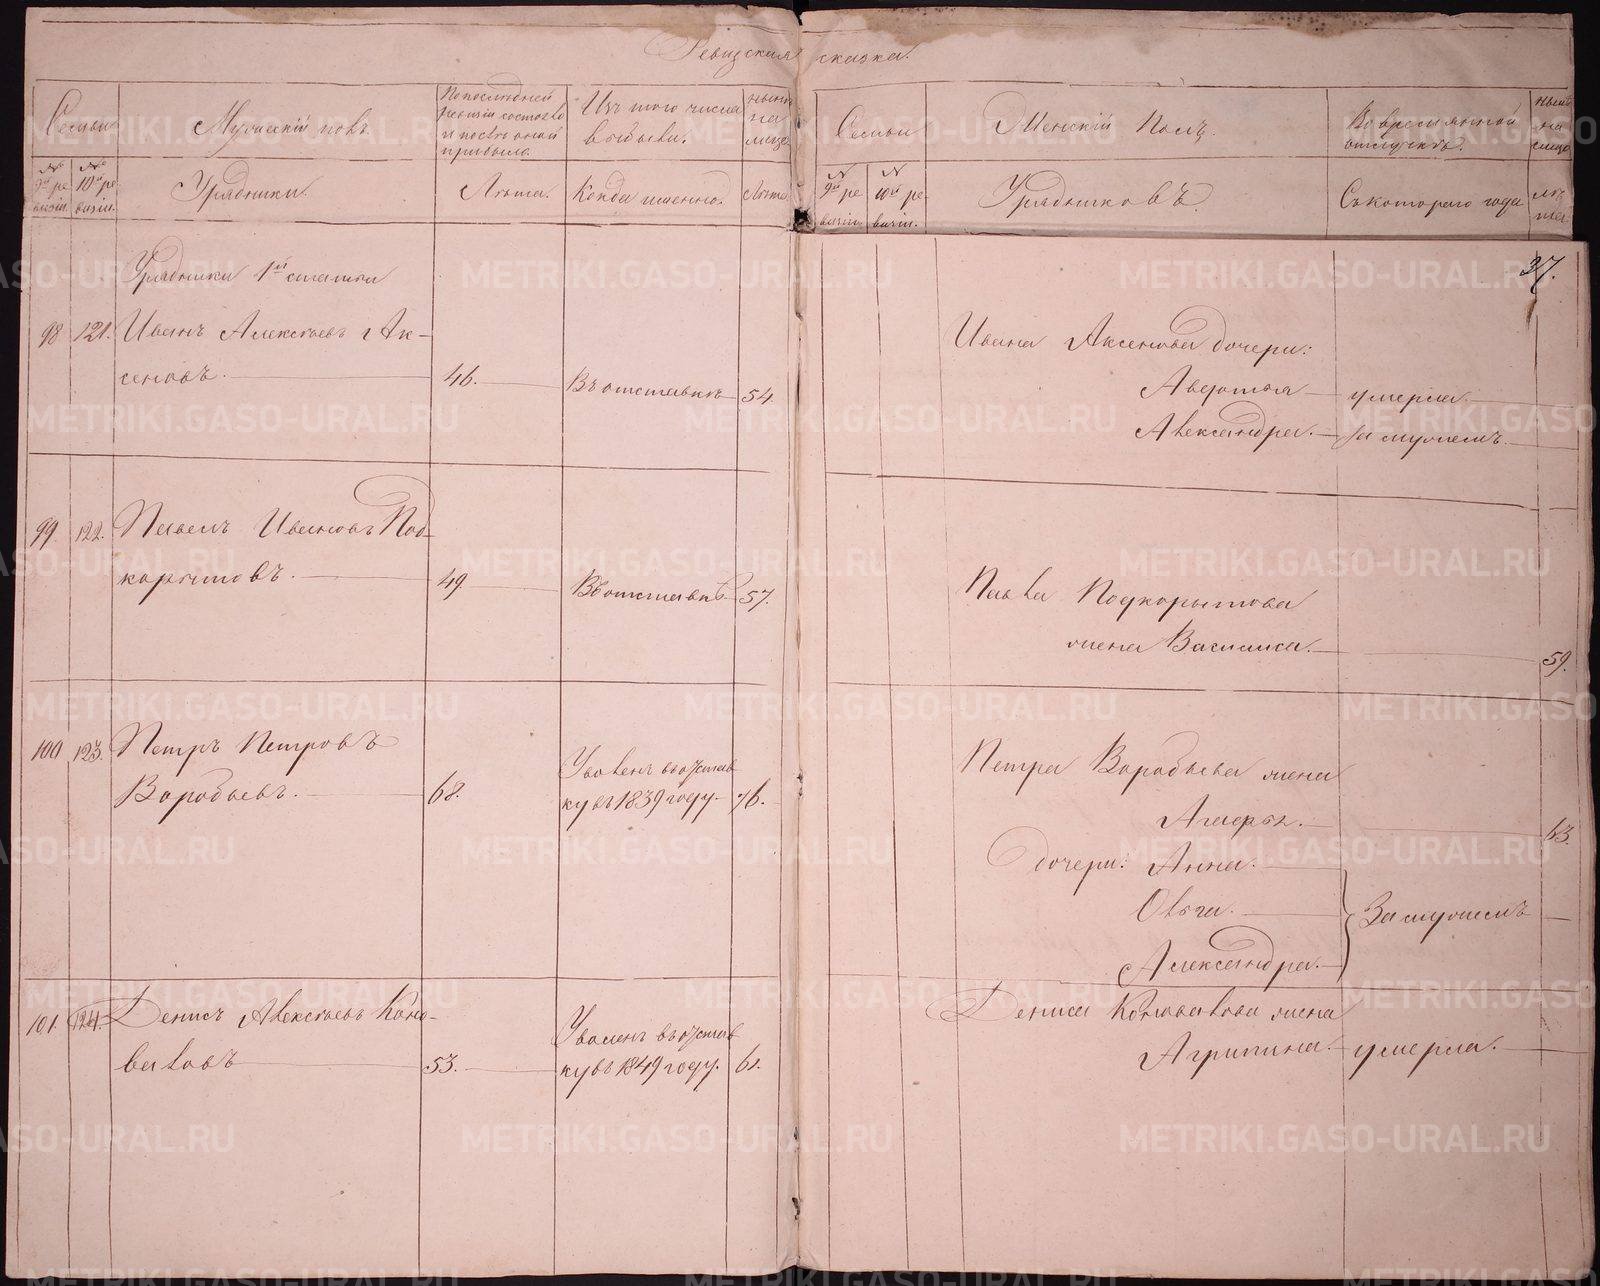 Ревизская сказка.
Семьи
Мужескій полъ.
По последней
ревизіи состояло
и после оной
прибыло.
Изъ того числа
выбыли.
ныне
на
лицо
№
9й ре
визіи.
№
10й ре
визіи.
Урядники.
Лета.
Когда именно.
Лета
Урядники 1й статьи
98 121. Иванъ Алексеевъ Ак-
сеновъ. 46. Въ отставке 54
99. 122. Павелъ Ивановъ Под-
корытовъ. 49 Въ отставке 57.
100 123. Петръ Петровъ
Воробьевъ. 68. Уволенъ въ отстав
ку въ 1839 году. 76.
101. 124. Денисъ Алексеевъ Коно-
валовъ 53. Уволенъ въ отстав
ку въ 1849 году. 61.
Семьи
Женскій Полъ.
Во временной
отлучке.
ныне
на
лицо
№
9й ре
визіи.
№
10й ре-
визіи.
Урядниковъ.
Съ котораго года
ле
та
37.
Ивана Аксенова дочери:
Авдотья умерла.
Александра. за мужемъ.
Павла Подкорытова
жена Василиса. 59.
Петра Воробьева жена
63.
дочери: Анна.
Ольга. За мужемъ
Александра.
Дениса Коновалова жена
Агрипина. умерла.
METRIKI.GASO-URAL.RU